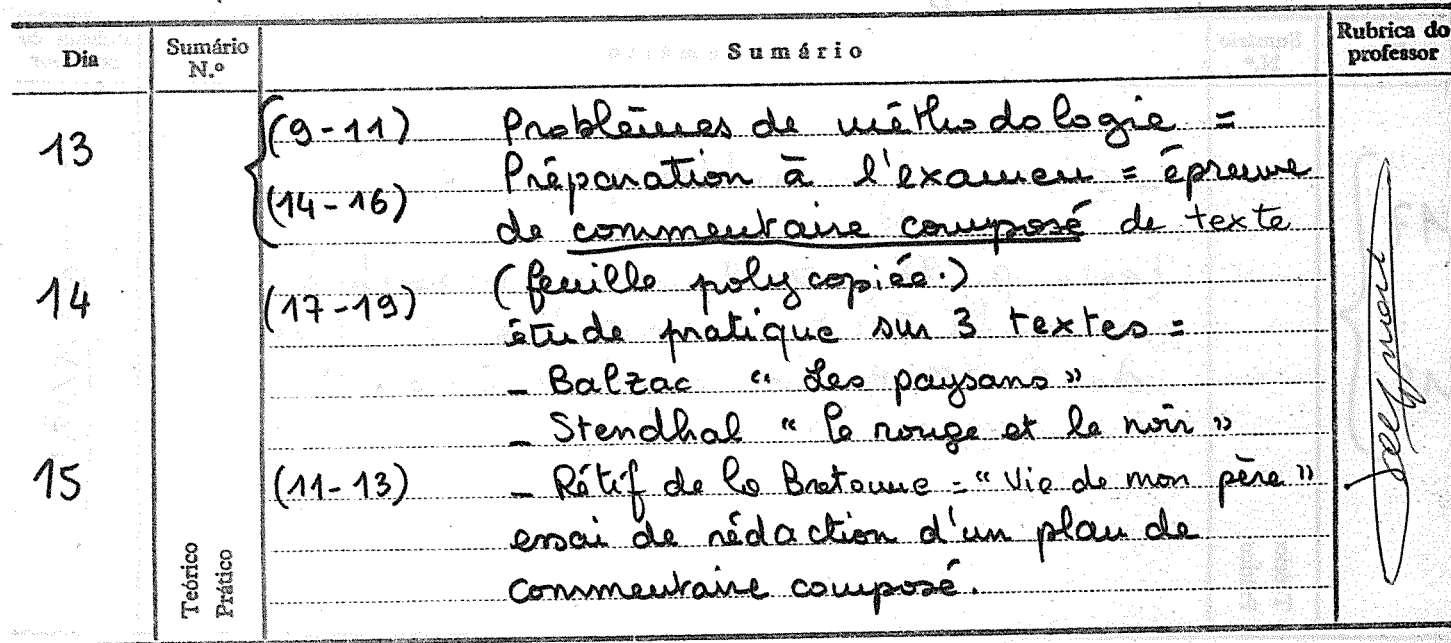 Dia Sumário N.º Sumário Rubrica do professor
13 (9-11) Problèmes de méthodologie =
Préparation à l'examen = épreuve
(14-16) de commentaire composé de texte
14 (17-19) (feuille polycopiée.)
étude pratique sur 3 textes =
- Balzac " Les paysans "
- Stendhal " le rouge et le noir "
15 (11-13) - Rétif de la Bretonne = " Vie de mon père "
essai de rédaction d'un plan de
commentaire composé.
Teórico
Prático